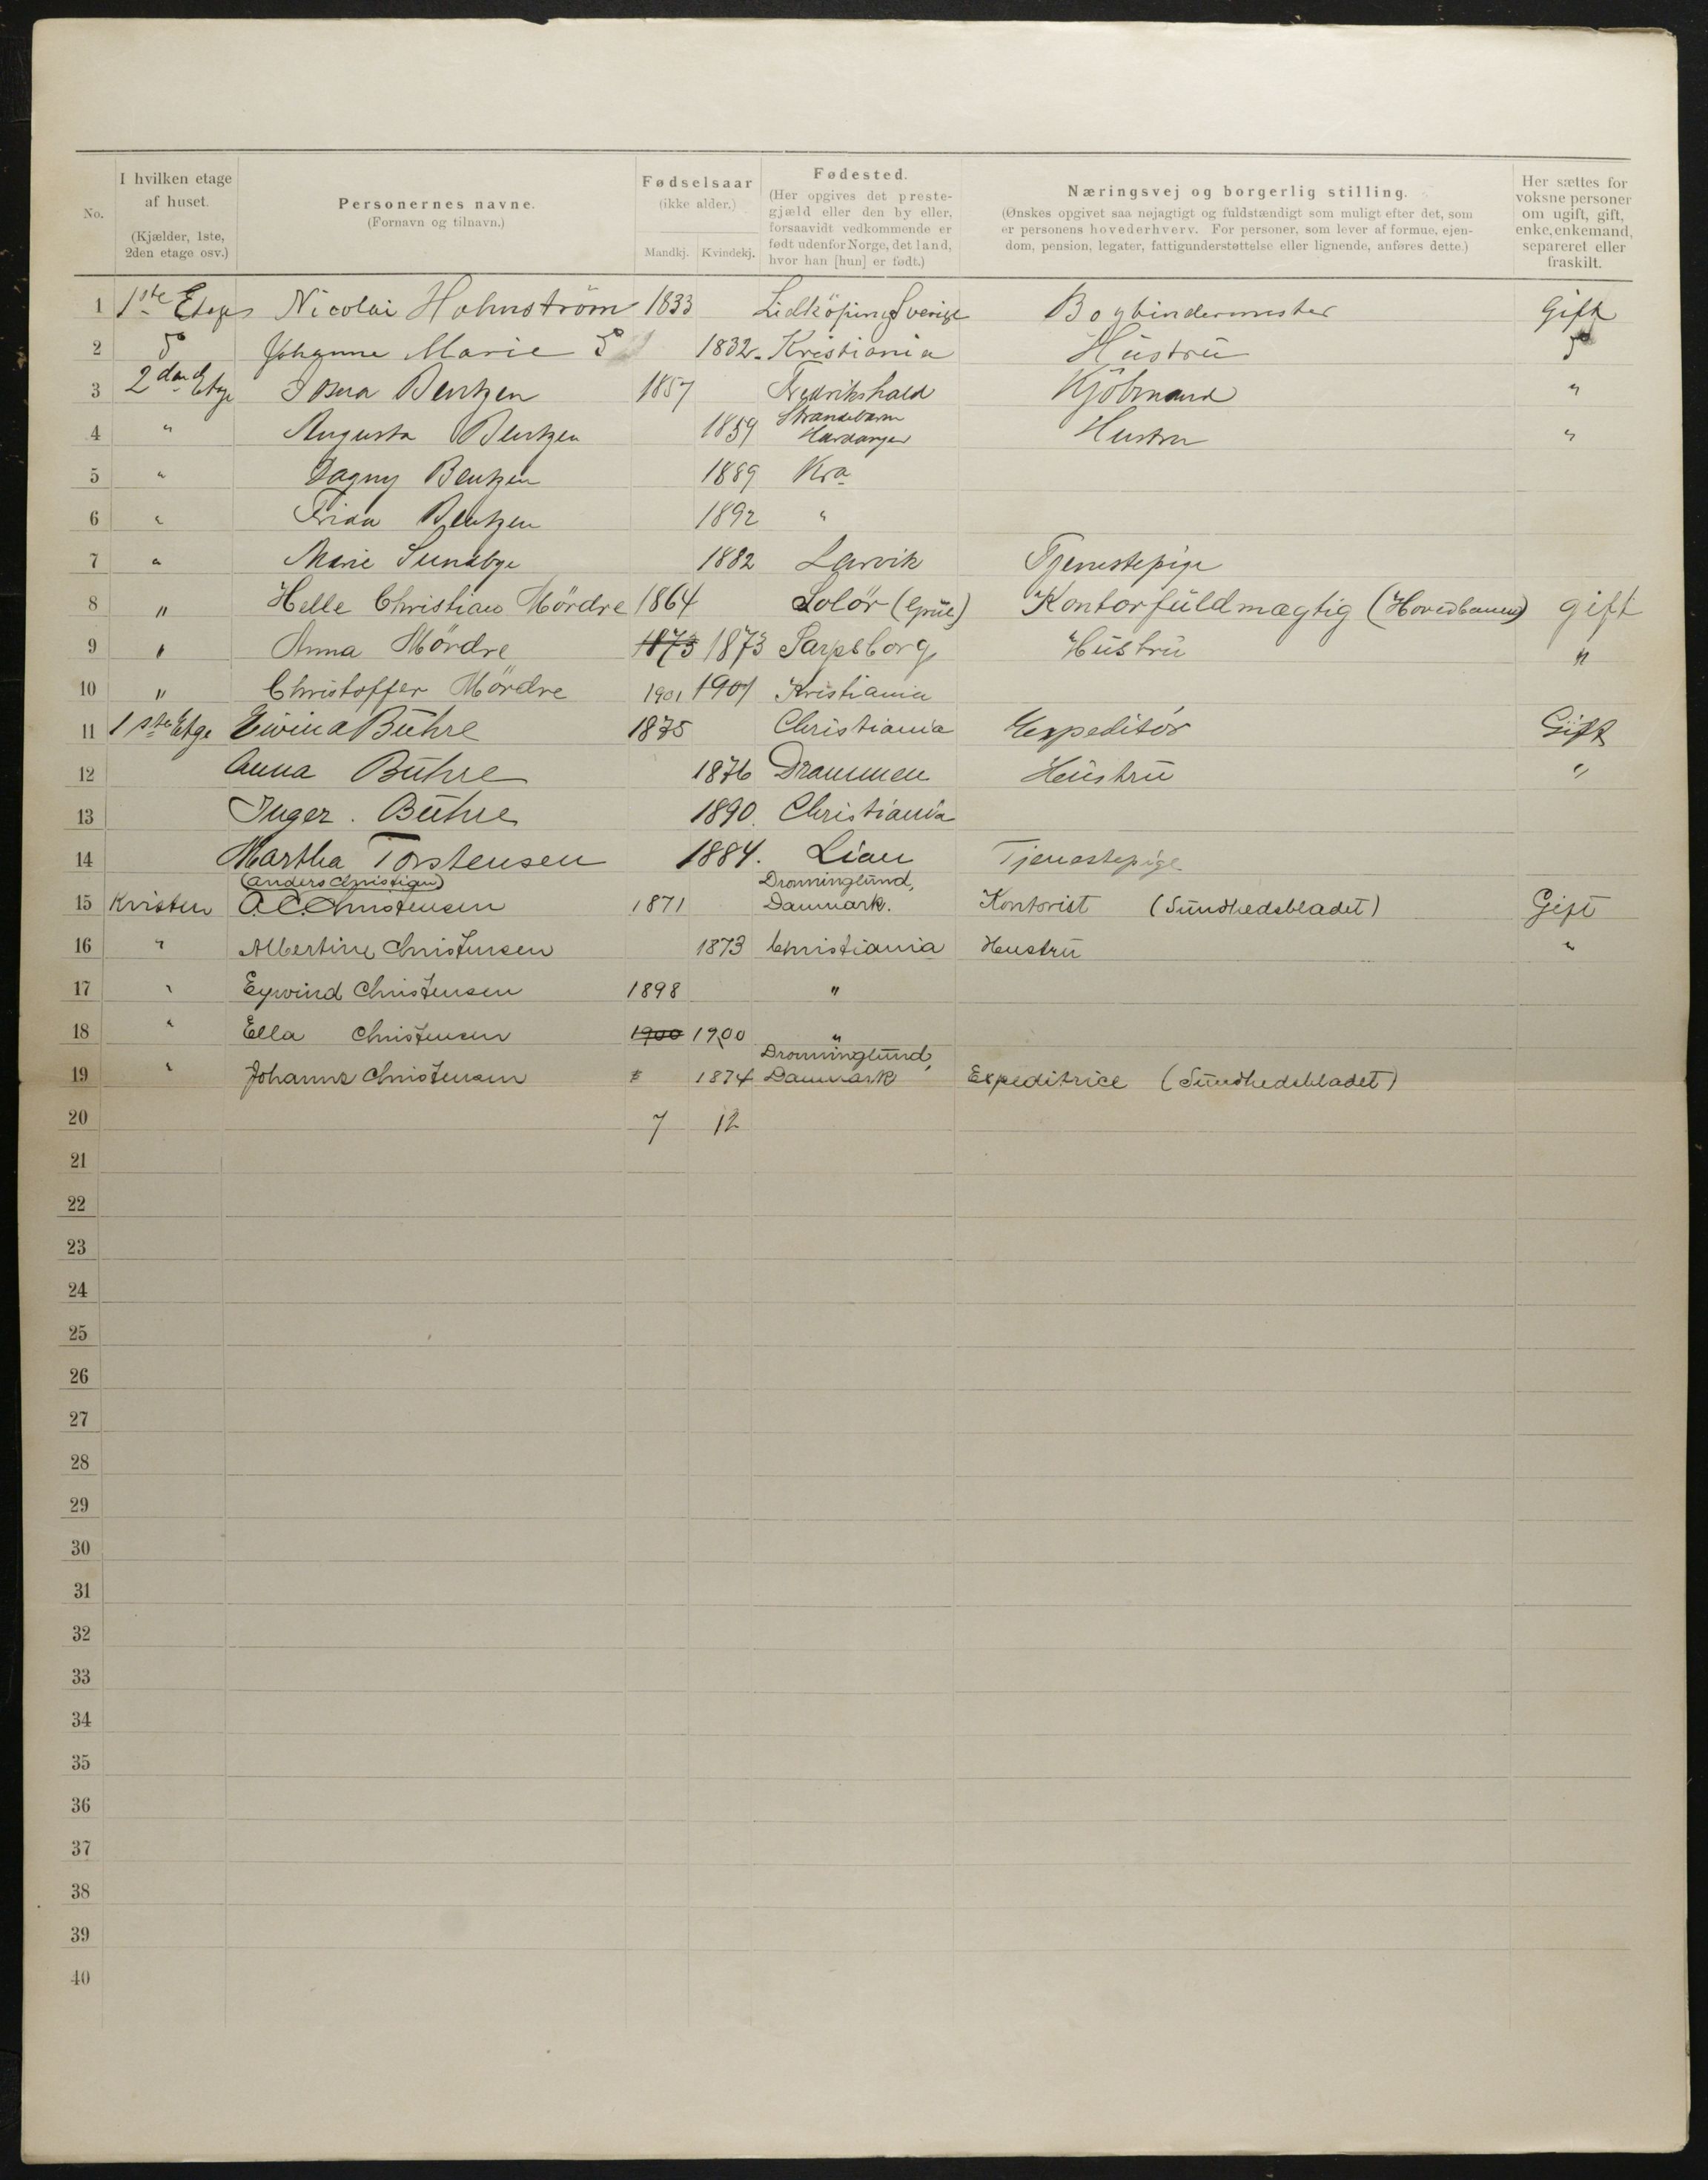 No.
I hvilken etage af huset.
(Kjælder, 1ste, 2den etage osv.)
Personernes navne.
(Fornavn og tilnavn.)
Fødselsaar
(ikke alder.)
Mandkj. Kvindekj.
Fødested.
(Her opgives det preste-
gjæld eller den by eller,
forsaavidt vedkommende er
født udenfor Norge, det land,
hvor han [hun] er født.)
Næringsvej og borgerlig stilling.
(Ønskes opgivet saa nøjagtigt og fuldstændigt som muligt efter det, som
er personens hovederhverv. For personer, som lever af formue, ejen-
dom, pension, legater, fattigunderstøttelse eller lignende, anføres dette.)
Her sættes for
voksne personer
om ugift, gift,
enke, enkemand,
separeret eller
fraskilt.
1 1ste Etage Nicolai Holmström 1833 Lidköping Sverige Bogbindermester Gift
2 do Johanne Marie do 1832. Kristiania Hustru do
3 2den Etge Bentzen 1857 Fredrikshald Kjøbmand "
4 " Augusta Bentzen 1859 Strandebarm Hardanger Hustru "
5 " Dagny Bentzen 1889 Kra
6 " Frida Bentzen 1892 "
7 " Marie Sundbye 1882 Larvik Tjenestepige
8 " Helle Christian Mördre 1864 Solör (Grue) Kontorfuldmægtig (Hovedbanen) gift
9 " Anna Mördre 1873 1873 Sarpsborg Hustru "
10 " Christoffer Mördre 1901 1901 Kristiania
11 1ste Etge Eivind Bühre 1875 Christiania Expeditör Gift
12 Anna Bühre 1876 Drammen Hustru "
13 Inger. Bühre 1890. Christiania
14 Martha Torstensen 1884. Lian Tjenestepige
(Anders Christian) Dronninglund,
15 Kvisten A.C. Christensen 1871 Danmark. Kontorist (Sundhedsbladet) Gift
16 " Albertine Christensen 1873 Christiania Hustru "
17 " Eyvind Christensen 1898 "
18 " Ella Christensen 1900 1900 "
Dronninglund,
19 " Johanne Christensen 1874 Danmark Expeditrice (Sundhedsbladet)
20 7 12
21
22
23
24
25
26
27
28
29
30
31
32
33
34
35
36
37
38
39
40